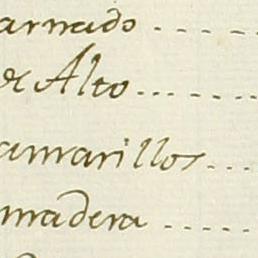 arnado
de Alto
amarillos
madera